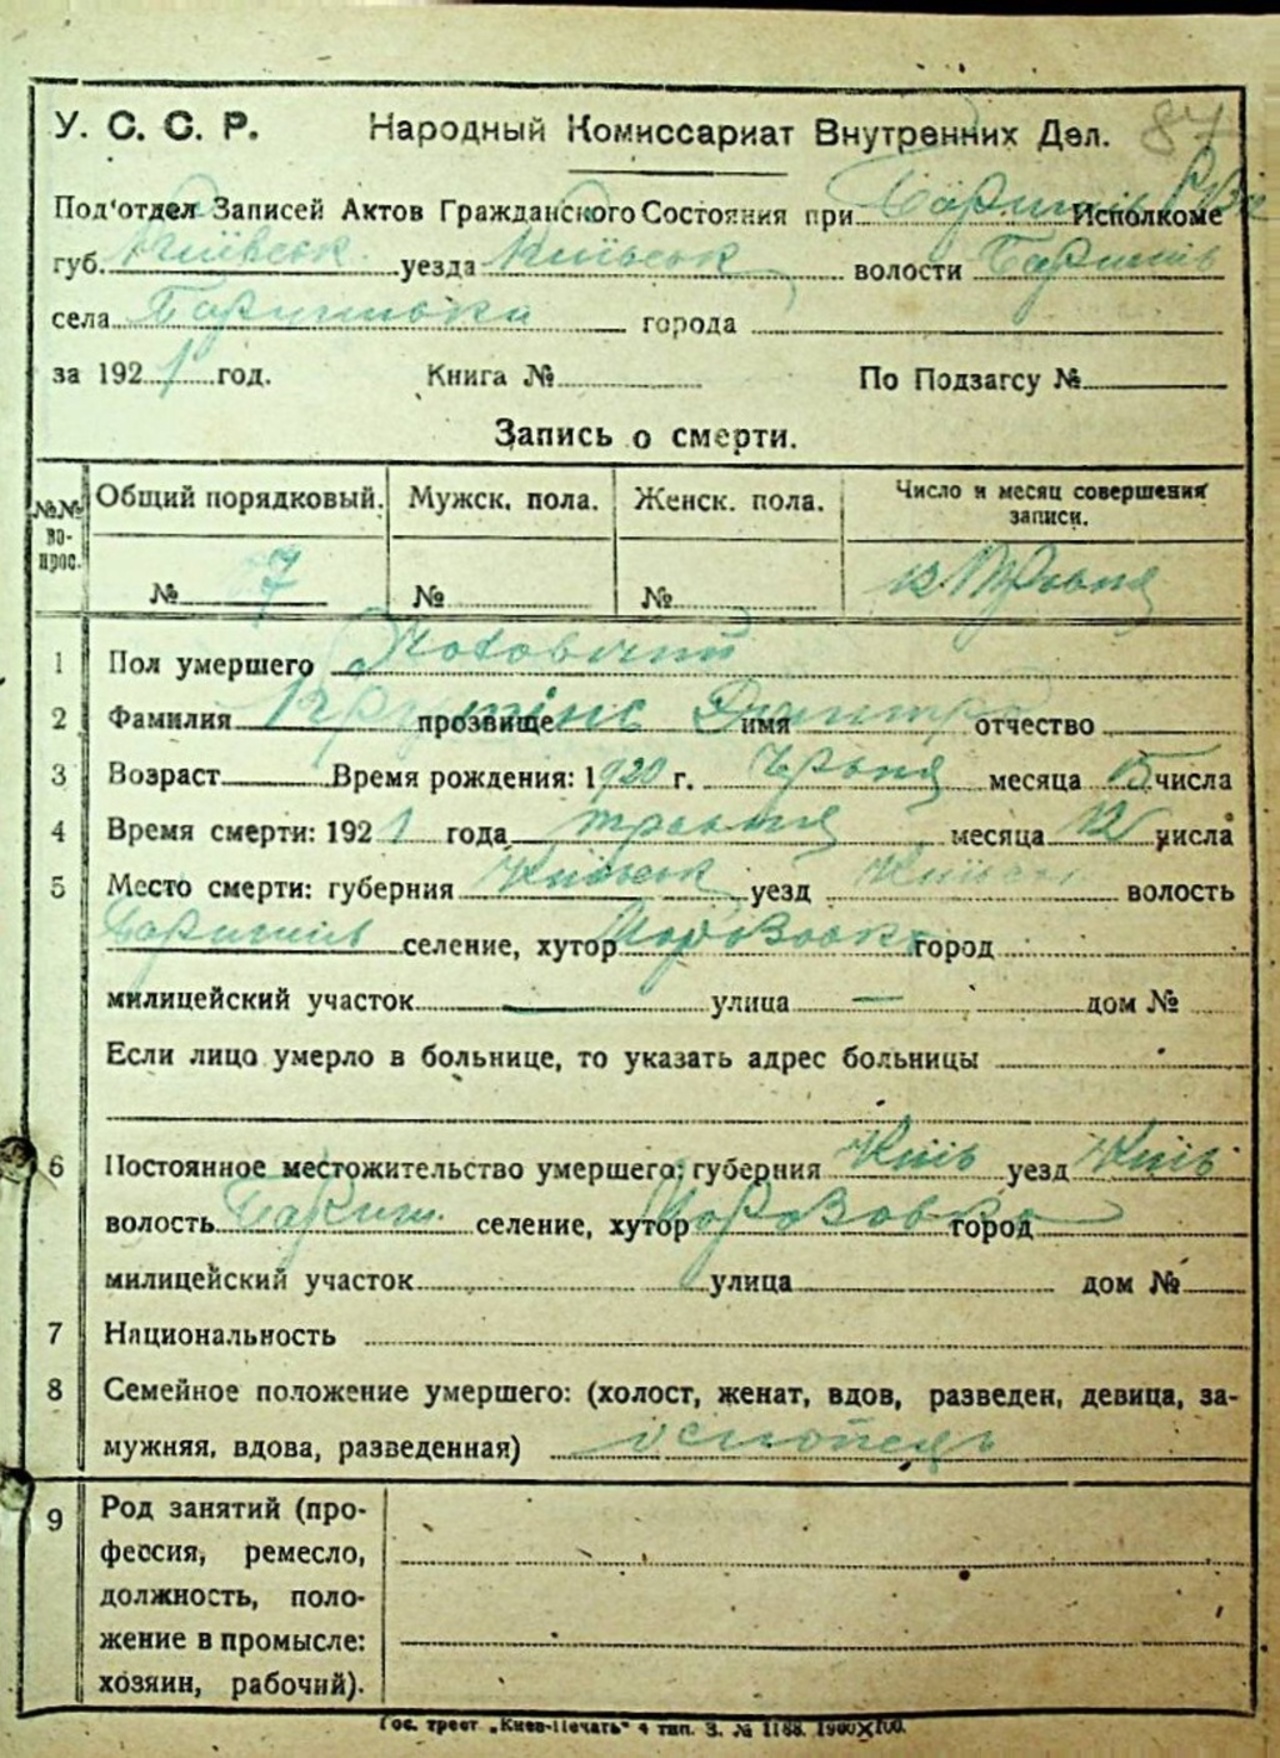 87
У. С. С. Р. Народный Комиссариат Внутренних Дел.
Под'отдел Записей Актов Гражданского Состояния при Баришів Исполкоме
губ. Київськ уезда Київськ волости Баришів
села Баришівка города
за 1921 год. Книга № По Подзагсу №
Запись о смерти.
№№ во-прос. Общий порядковый. Мужск. пола. Женск. пола. Число и месяц совершения записи.
№ 7 № № 12 Травня
1 Пол умершего Чоловичий
2 Фамилия прозвище Дмитро имя отчество
3 Возраст Время рождения: 1920 г. месяца 15 числа
4 Время смерти: 1921 года травня месяца 12 числа
5 Место смерти: губерния Київськ уезд Київськ волость
Баришів селение, хутор Морозовка город
милицейский участок — улица — дом №
Если лицо умерло в больнице, то указать адрес больницы
6 Постоянное местожительство умершего: губерния Київ уезд Київ
волость Бариш. селение, хутор Морозовка город
милицейский участок улица дом №
7 Национальность
8 Семейное положение умершего: (холост, женат, вдов, разведен, девица, за-
мужняя, вдова, разведенная)
9 Род занятий (про-
фессия, ремесло,
должность, поло-
жение в промысле:
хозяин, рабочий).
Гос. трест „Киев-Печать" 4 тип. З. № 1188. 1900×100.